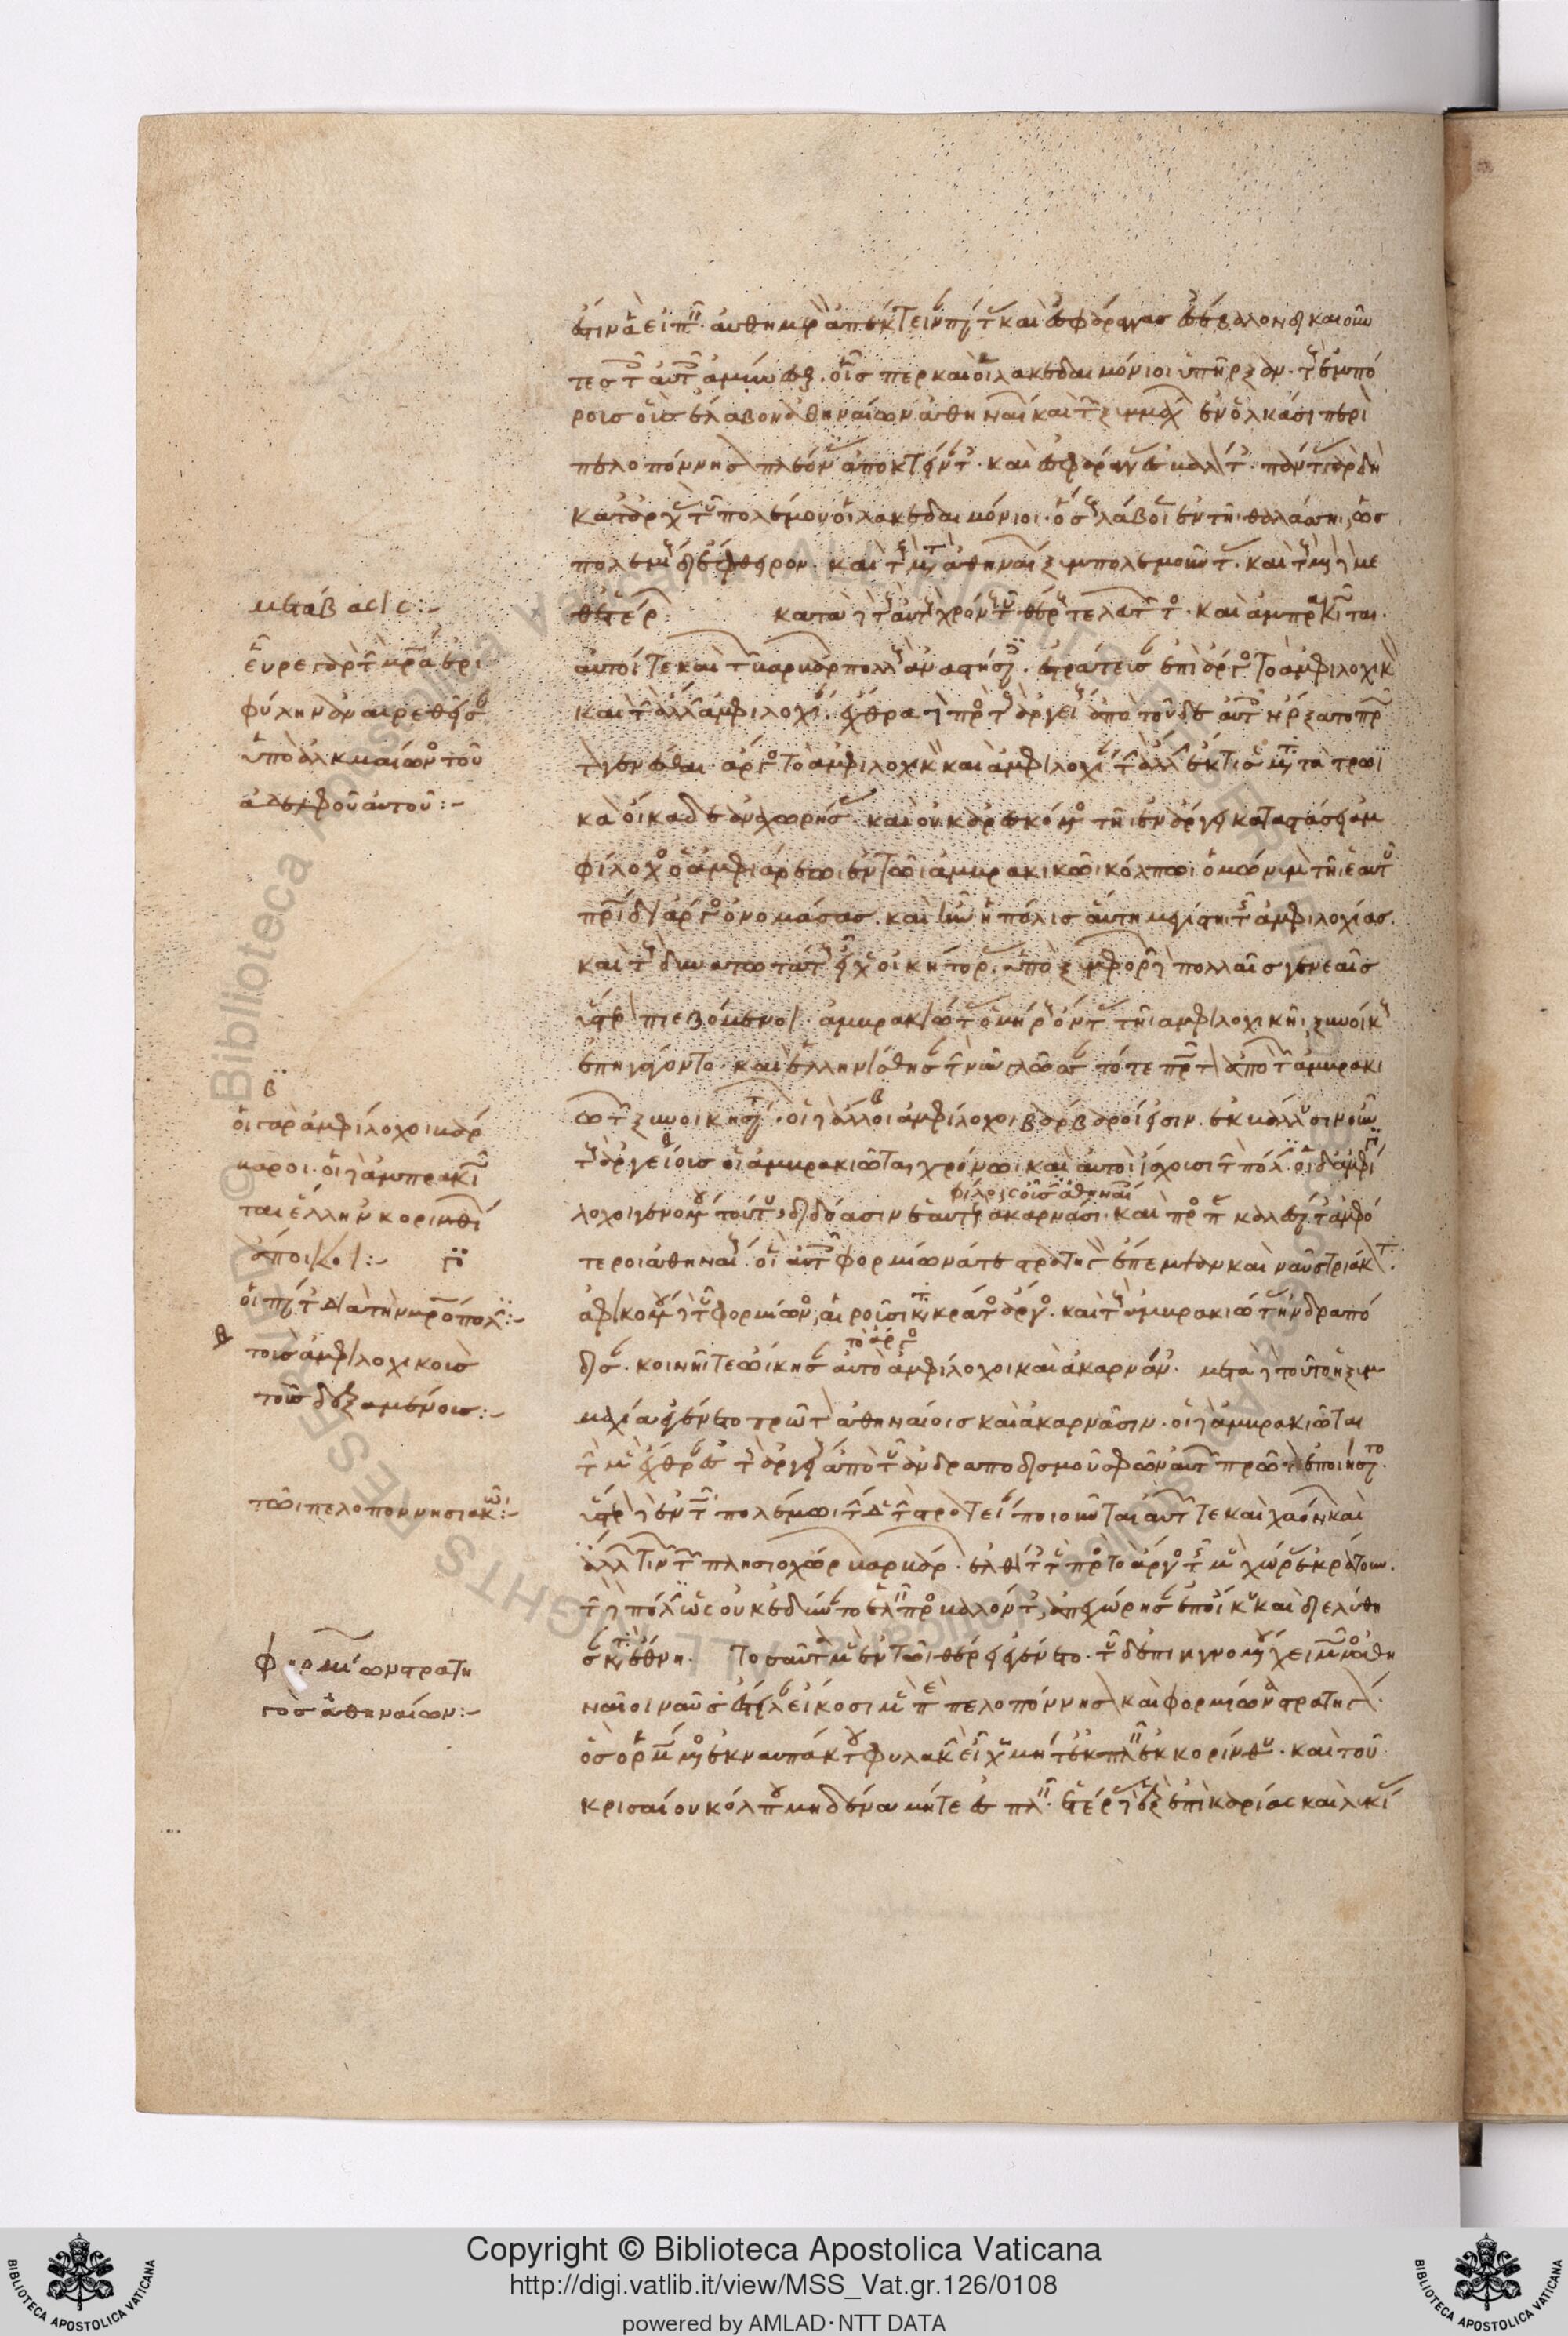 ἔστιν ἃ εἰπεῖν αὐθημερὸν ἀπέκτειναν πάντας καὶ ἐς φάραγγας ἐσέβαλον δικαιοῦν
τες τοῖς αὐτοῖς ἀμύνεσθαι. οἷς περ καὶ οἱ λακεδαιμόνιοι ὑπῆρξαν. τοὺς ἐμπό
ρους οὓς ἔλαβον ἀθηναίων καὶ τῶν ξυμμάχων ἐν ὁλκάσι περὶ
πελοπόννησον πλέοντας ἀποκτείναντες. καὶ ἐς φάραγγας ἐσβαλόντες. πάντας γὰρ δὴ
κατ᾽ ἀρχὰς τοῦ πολέμου οἱ λακεδαιμόνιοι ὅσους λάβοιεν ἐν τῆι θαλάσσηι, ὡς
πολεμίους διέφθειρον. καὶ τοὺς μετὰ ἀθηναίων ξυμπολεμοῦντας. καὶ τοὺς μηδὲ με
θ᾽ ἑτέρων. κατὰ δὲ τοὺς αὐτοὺς χρόνους τοῦ θέρους τελευτῶντος. καὶ ἀμπρακιῶται.
αὐτοί τε καὶ τῶν βαρβάρων πολλοὺς ἀναστήσαντες. ἐστράτευσαν ἐπὶ ἄργος τὸ ἀμφιλοχικὸν
καὶ τὴν ἄλλην ἀμφιλοχίαν. ἔχθρα δὲ πρὸς τοὺς ἀργείους ἀπὸ τοῦδε αὐτοῖς ἤρξατο πρῶτον
γενέσθαι. ἄργος τὸ ἀμφιλοχικὸν καὶ ἀμφιλοχίαν τὴν ἄλλην ἔκτισε μετὰ τὰ τρωϊ
κὰ οἴκαδε ἀναχωρήσας. καὶ οὐκ ἀρεσκόμενος τῆι ἐν ἄργει καταστάσει ἀμ
φίλοχος ὁ ἀμφιάρεω ἐν τῶι ἀμπρακικῶι κόλπωι ὁμώνυμον τῆι ἑαυτοῦ
πατρίδι ἄργος ὀνομάσας. καὶ ἦν ἡ πόλις αὕτη μεγίστη τῆς ἀμφιλοχίας.
καὶ τοὺς δυνατωτάτους εἶχεν οἰκήτορας. ὑπὸ ξυμφορῶν δὲ πολλαῖς γενεαῖς
ὕστερον πιεζόμενοι. ἀμπρακιώτας ὁμήρους ὄντας τῆι ἀμφιλοχικῆι, ξυνοίκους
ἐπηγάγοντο. καὶ ἑλληνίσθησαν τὴν νῦν γλῶσσαν τότε πρῶτον ἀπὸ τῶν ἀμπρακι
ωτῶν ξυνοικησάντων. οἱ δὲ ἄλλοι ἀμφίλοχοι βάρβαροί εἰσιν. ἐκβάλλουσιν οὖν
τοὺς ἀργείους οἱ ἀμπρακιῶται χρόνωι. καὶ αὐτοὶ ἴσχουσι τὴν πόλιν. οἱ δ᾽ ἀμφί
φίλοις οὖσιν ἀθηναίων
λοχοι γενομένου τούτου, διδόασιν ἑαυτοὺς ἀκαρνᾶσι. καὶ προσπαρακαλέσαντες ἀμφό
τεροι ἀθηναίους. οἳ αὐτοῖς φορμίωνά τε στρατηγὸν ἔπεμψαν καὶ ναῦς τριάκοντα.
ἀφικομένου δὲ τοῦ φορμίωνος, αἱροῦσι κατὰ κράτος ἄργος. καὶ τοὺς ἀμπρακιώτας ἠνδραπό
τὸ ἄργος
δισαν. κοινῆι τε ᾤκησαν αὐτὸ ἀμφίλοχοι καὶ ἀκαρνᾶνες. μετὰ δὲ τοῦτο ἡ ξυμ
μαχία ἐγένετο πρῶτον ἀθηναίοις καὶ ἀκαρνᾶσιν. οἱ δὲ ἀμπρακιῶται
τὴν μὲν ἔχθραν ἐς τοὺς ἀργείους ἀπὸ τοῦ ἀνδραποδισμοῦ σφῶν αὐτῶν πρῶτον ἐποιήσαντο.
ὕστερον δὲ ἐν τῶι πολέμωι τήνδε τὴν στρατείαν ποιοῦνται αὐτῶν τε καὶ χαόνων καὶ
ἄλλων τινῶν τῶν πλησιοχώρων βαρβάρων. ἐλθόντες τε πρὸς τὸ ἄργος τῆς μὲν χώρας ἐκράτουν.
τὴν δὲ πόλιν ὡς οὐκ ἐδύναντο ἑλεῖν προσβαλόντες, ἀπεχώρησαν ἐπ᾽ οἴκου καὶ διελύθη
σαν κατὰ ἔθνη. τοσαῦτα μὲν ἐν τῶι θέρει ἐγένετο. τοῦ δ᾽ ἐπιγιγνομένου χειμῶνος ἀθη
ναῖοι ναῦς ἔστειλαν εἴκοσι μὲν περὶ πελοπόννησον καὶ φορμίωνα στρατηγόν.
ὃς ὁρμώμενος ἐκ ναυπάκτου φυλακὴν εἶχε μήτ᾽ ἐκπλεῖν ἐκ κορίνθου. καὶ τοῦ
κρισαίου κόλπου μηδένα μήτε ἐσπλεῖν. ἑτέρας δὲ ἓξ ἐπὶ καρίας καὶ λυκί
μετάβασις:-
εὗρε γὰρ τὴν μητέρα ἐρι
φύλην ἀναιρεθεῖσαν
ὑπὸ ἀλκμαίωνος τοῦ
ἀδελφοῦ αὐτοῦ:-
β
οἱ γὰρ ἀμφίλοχοι βάρ
βαροι. οἱ δὲ ἀμπρακιῶ
ται ἕλληνες κορινθίων
ἄποικοι:- γ
τοῖς ἀμφιλοχικοῖς
τοῖς δεξαμένοις:-
τῶι πελοποννησιακῶι:-
φορμίων στρατη
γὸς ἀθηναίων:-
Copyright © Biblioteca Apostolica Vaticana
http://digi.vatlib.it/view/MSS_Vat.gr.126/0108
powered by AMLAD·NTT DATA
BIBLIOTECA APOSTOLICA VATICANA
BIBLIOTECA APOSTOLICA VATICANA